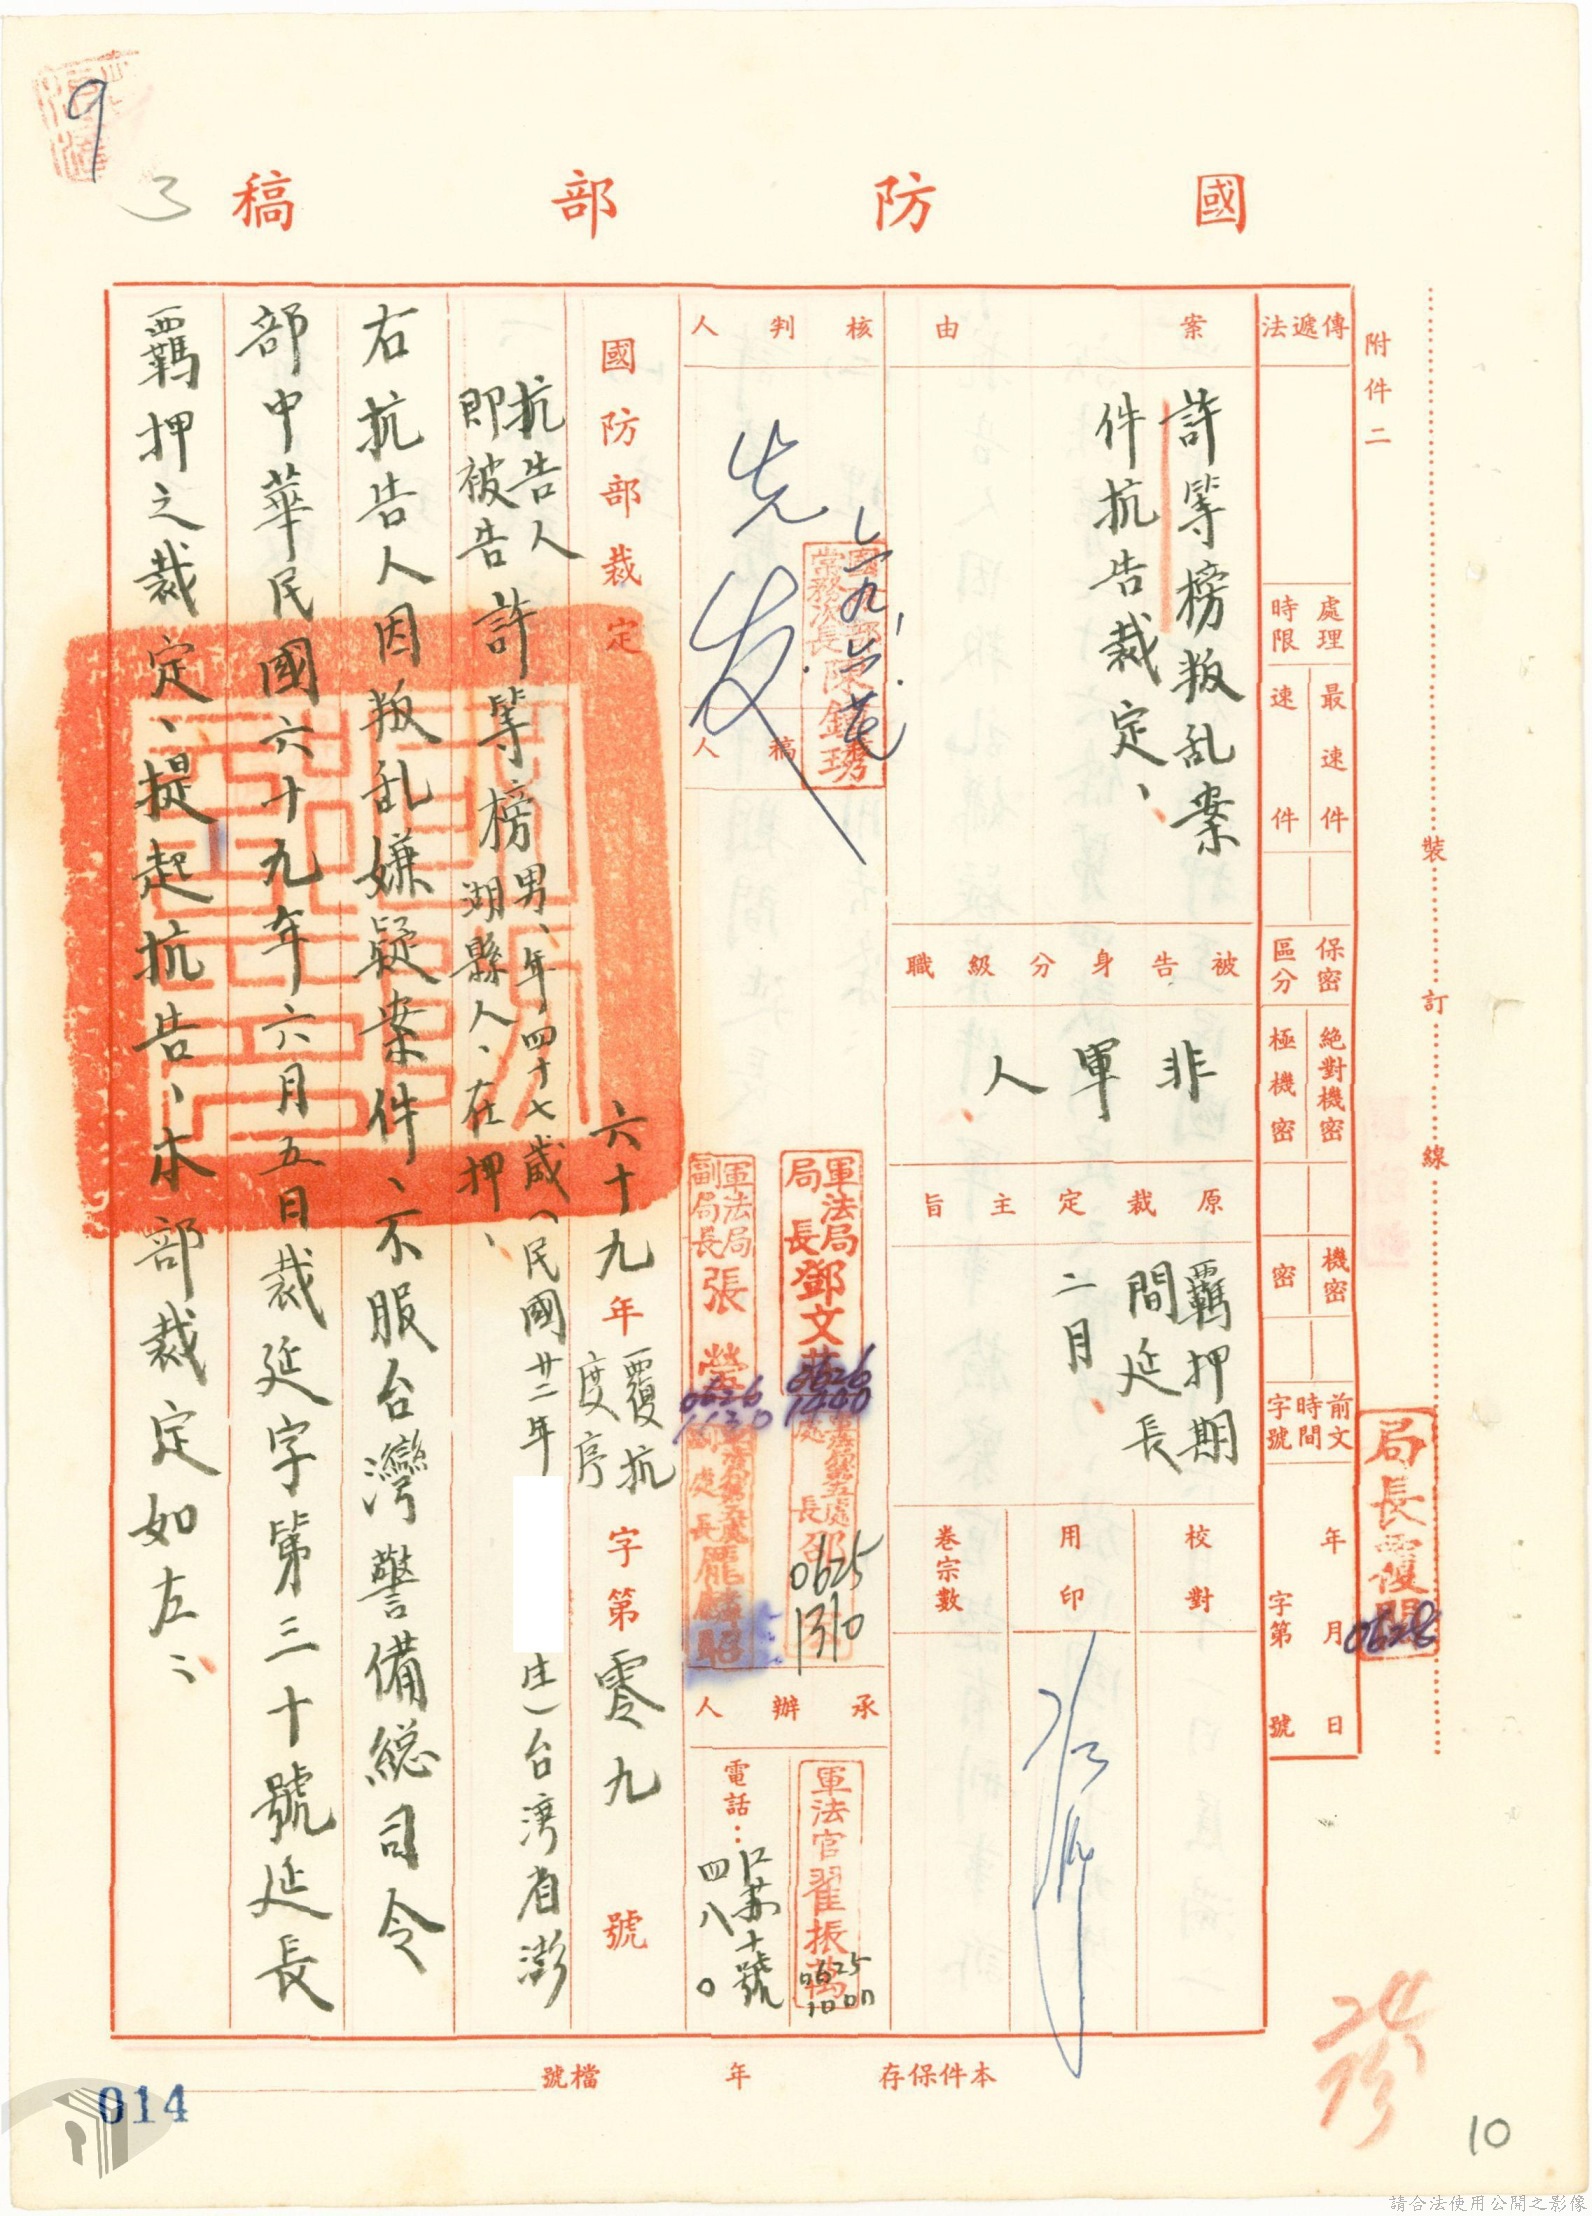 國防部稿
附件二
裝訂線
傳遞法
處理時限
最速件
速件
保密區分
絕對機密
極機密
機密
密
前文時間字號
年月日
字第號
局長覆閱
0628
案由
許等榜叛乱案
件抗告裁定、
被告身分級職
非軍人
原裁定主旨
羈押期
間延長
二月、
校對
用印
卷宗數
核判人
先發
國防部常務次長陳鍾琇
稿人
軍法局局長鄧文
0626
1400
軍法局副局長張
0626
1130
軍法局第五處處長邵
0625
1310
軍法局第五處副處長龐麟昭
承辦人
軍法官翟振萬
0625
1000
電話：
四八〇
國防部裁定
六十九年度覆抗序字第零九號
抗告人
即被告
許等榜
男、年四十七歲（民國廿二年
生）台湾省澎
湖縣人、在押、
右抗告人因叛乱嫌疑案件、不服台灣警備総司令
部中華民國六十九年六月五日裁延字第三十號延長
羈押之裁定、提起抗告、本部裁定如左：
本件保存
年
檔號
9
3
014
10
請合法使用公開之影像